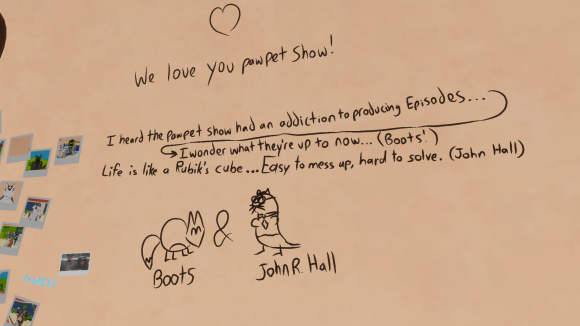 We love you pawpet show!
I heard the pawpet show had an addiction to producing Episodes...
I wonder what they're up to now... (Boots!)
Life is like a Rubik's cube... Easy to mess up, hard to solve. (John Hall)
&
Boots
John R. Hall